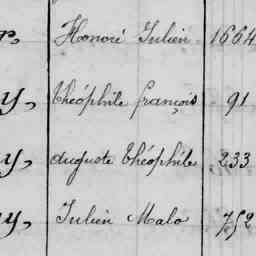 r, Honoré Julien 1664
y, théophile françois 91
y, auguste théophile 233
y, Julien Malo 752